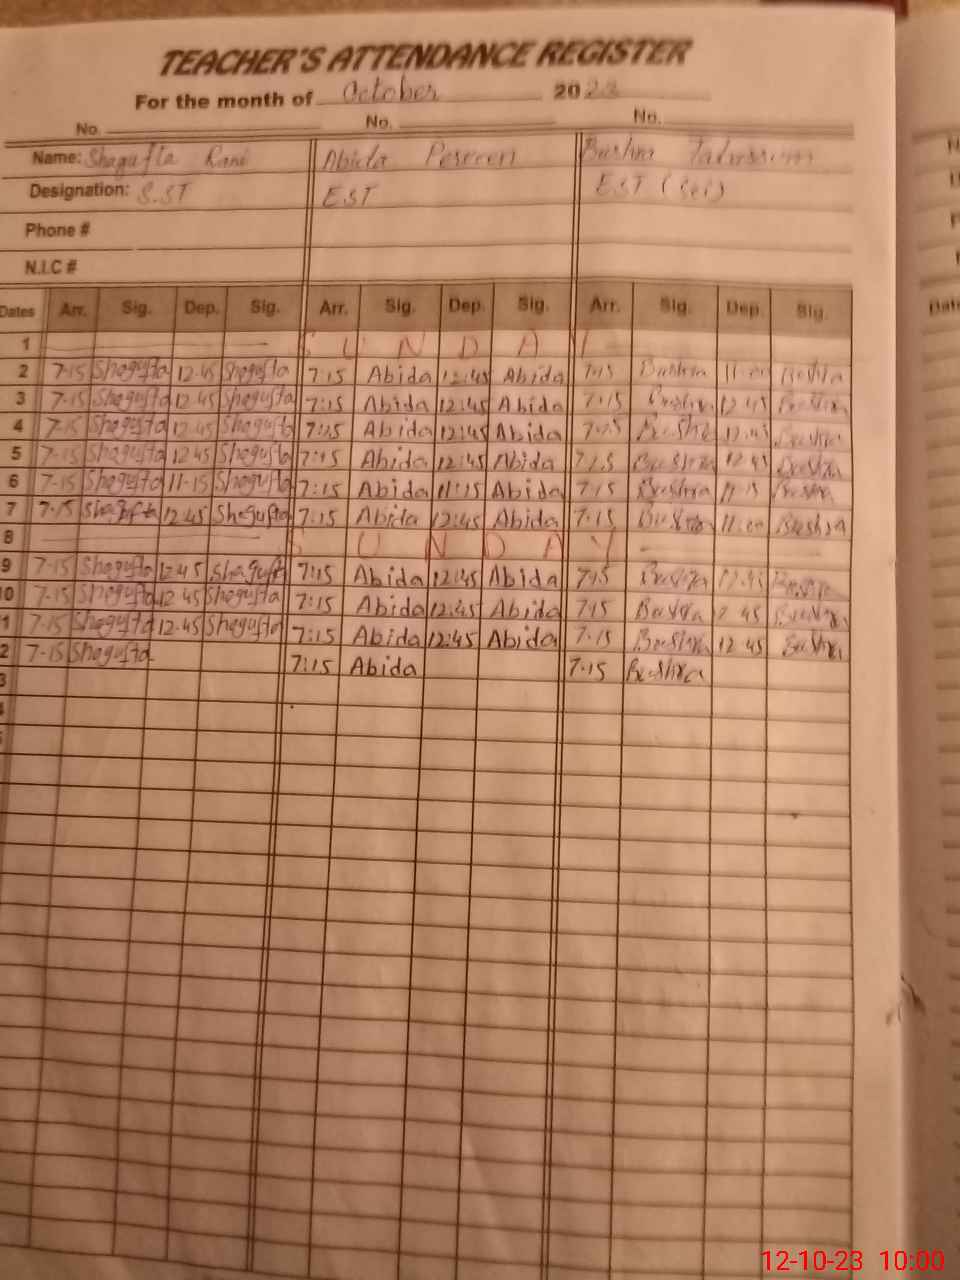 TEACHER'S ATTENDANCE REGISTER
For the month of October 2023
No. No. No.
Name: Shagufta Rani Abida Perveen Bushra
Designation: S.ST EST EST (Sci)
Phone #
N.I.C #
Dates Arr. Sig. Dep. Sig. Arr. Sig. Dep. Sig. Arr. Sig. Dep. Sig.
1 S U N D A Y
2 7-15 Shagufta 12-45 Shagufta 7:15 Abida 12:45 Abida 7-15 Bushra 11-00 Bushra
3 7-15 Shagufta 12-45 Shagufta 7:15 Abida 12:45 Abida 7-15 Bushra 12 45 Bushra
4 7-15 Shagufta 12-45 Shagufta 7:15 Abida 12:45 Abida 7-15 Bushra 12-45 Bushra
5 7-15 Shagufta 12 45 Shagufta 7:15 Abida 12:45 Abida 7-15 Bushra 12 45 Bushra
6 7-15 Shagufta 11-15 Shagufta 7:15 Abida 11:15 Abida 7-15 Bushra 11-15 Bushra
7 7-15 Shagufta 12-45 Shagufta 7:15 Abida 12:45 Abida 7-15 Bushra 11-00 Bushra
8 S U N D A Y
9 7-15 Shagufta 12-45 Shagufta 7:15 Abida 12:45 Abida 7-15 Bushra 12-45 Bushra
10 7-15 Shagufta 12 45 Shagufta 7:15 Abida 12:45 Abida 7-15 Bushra 12 45 Bushra
1 7-15 Shagufta 12-45 Shagufta 7:15 Abida 12:45 Abida 7-15 Bushra 12 45 Bushra
2 7-15 Shagufta 7:15 Abida 7-15 Bushra
3
12-10-23 10:00